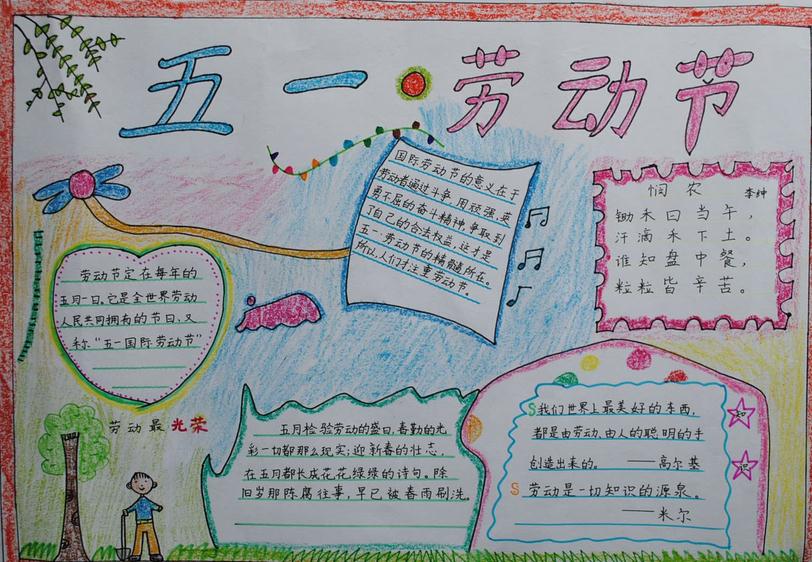 五一劳动节
国际劳动节的意义在于
劳动者通过斗争,用顽强、英
勇不屈的奋斗精神,争取到
了自己的合法权益.这才是
五一劳动节的精髓所在。
所以人们才注重劳动节。
悯农 李绅
锄禾日当午,
汗滴禾下土。
谁知盘中餐,
粒粒皆辛苦。
劳动节定在每年的
五月一日,它是全世界劳动
人民共同拥有的节日,又
称"五一国际劳动节"
劳动最光荣
五月检验劳动的盛日,春勤的光
彩一切都那么现实;迎新春的壮志,
在五月都长成花花绿绿的诗句。除
旧岁那陈腐往事,早已被春雨刷洗。
我们世界上最美好的东西,
都是由劳动、由人的聪明的手
创造出来的。——高尔基
劳动是一切知识的源泉。
——米尔